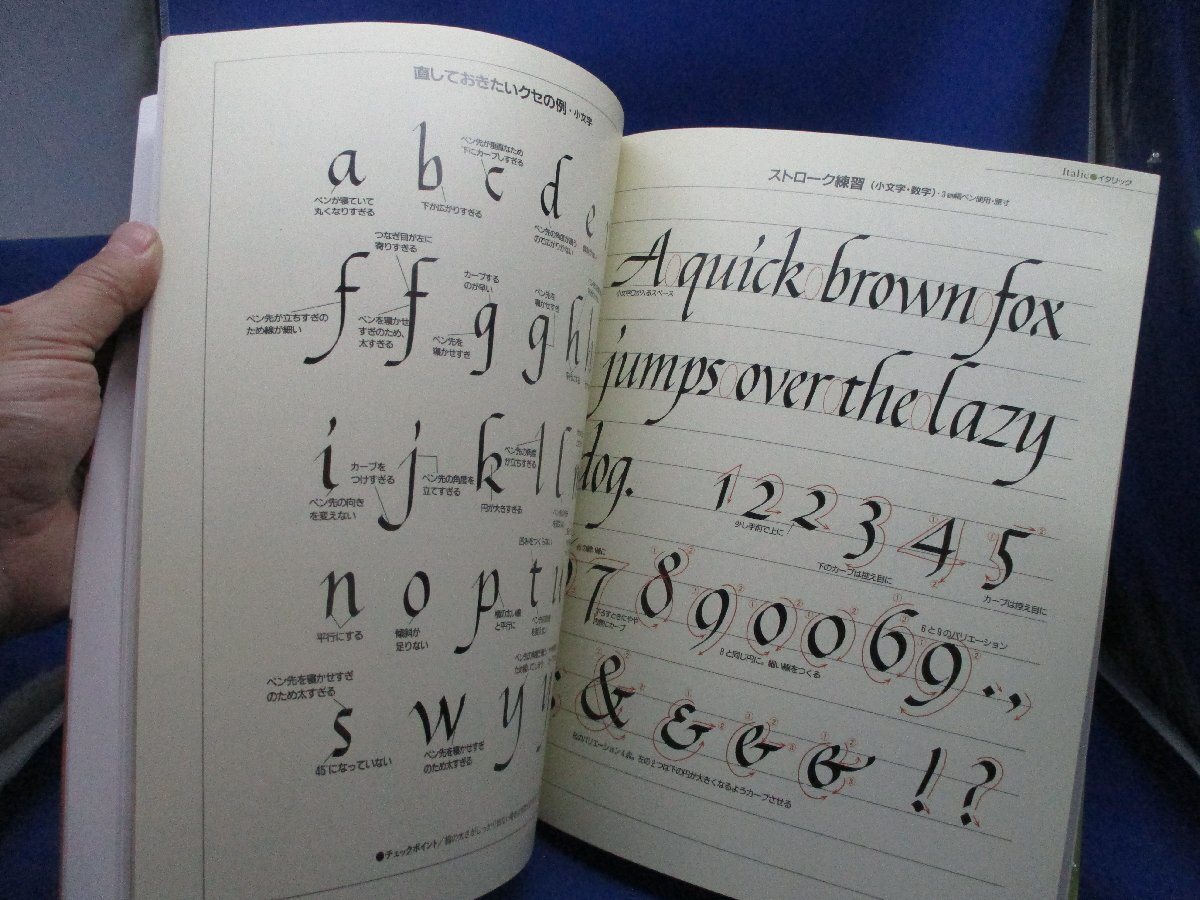 直しておきたいクセの例・小文字
a b c d e
ペン先が垂直なため
下にカーブしすぎる
ペンが寝ていて
丸くなりすぎる
下が広がりすぎる
ペン先の角度が違う
ので広がりがない
つなぎ目が左に
寄りすぎる
カーブする
のが早い
ペン先を
寝かせすぎ
f f g g h
ペン先が立ちすぎの
ため線が細い
ペンを寝かせ
すぎのため、
太すぎる
ペン先を
寝かせすぎ
i j k l l
カーブを
つけすぎる
ペン先の角度を
立てすぎる
ペン先の角度
が立ちすぎる
ペン先の向き
を変えない
円が大きすぎる
n o p t u
平行にする
傾斜が
足りない
と平行に
ペン先を寝かせすぎ
のため太すぎる
s w y
45°になっていない
ペン先を寝かせすぎ
のため太すぎる
●チェックポイント/
Italic●イタリック
ストローク練習(小文字・数字)・3㎜幅ペン使用・原寸
A quick brown fox
小文字oが入るスペース
jumps over the lazy
dog.
1 2 2 3 4 5
少し手前で上に
下のカーブは控え目に
カーブは控え目に
7 8 9 0 0 6 9 . ,
下ろすときにやや
6と9のバリエーション
8と同じ円に。細い線をつくる
& & & & ! ?
&のバリエーション4点。左の2つは下の円が大きくなるようカーブさせる